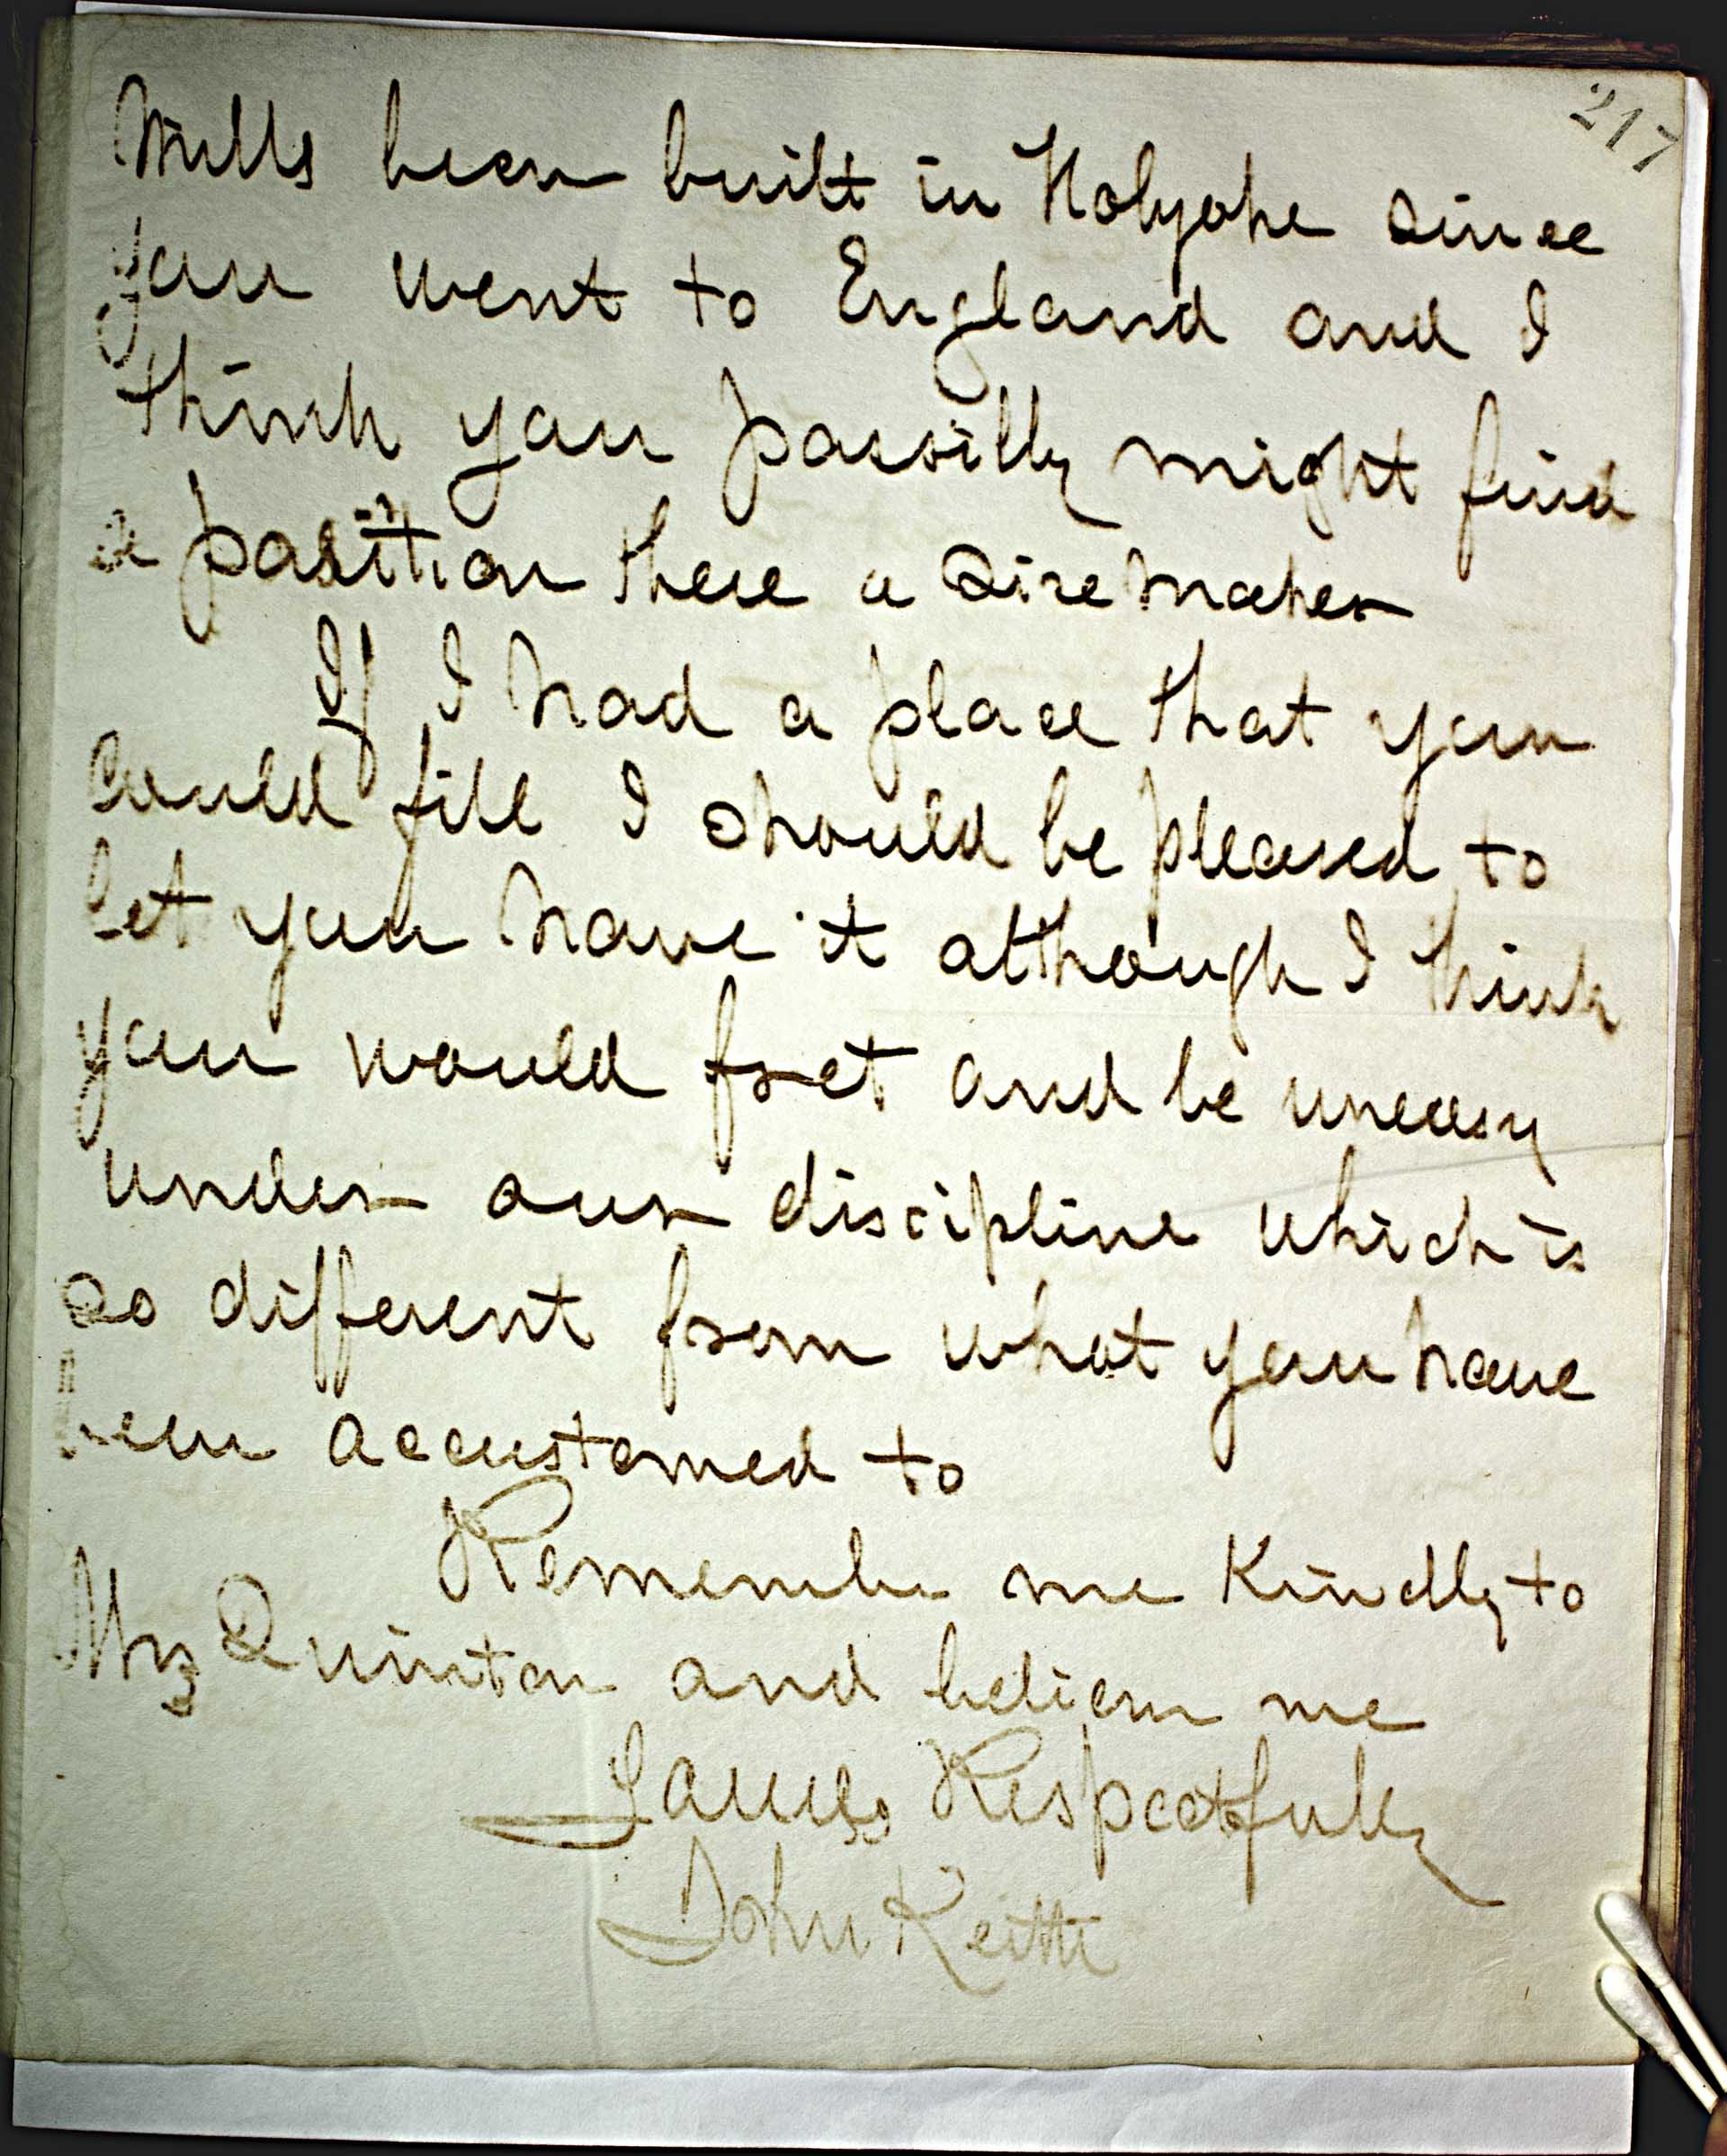 217
Mills been built in Holyoke since
you went to England and I
think you possibly might find
a position there a Size maker
If I had a place that you
could fill I should be pleased to
let you have it although I think
you would fret and be uneasy
under our discipline which is
so different from what you have
been accustomed to
Remember me Kindly to
Mrs Quinton and believe me
Yours Respectfully
John Keith